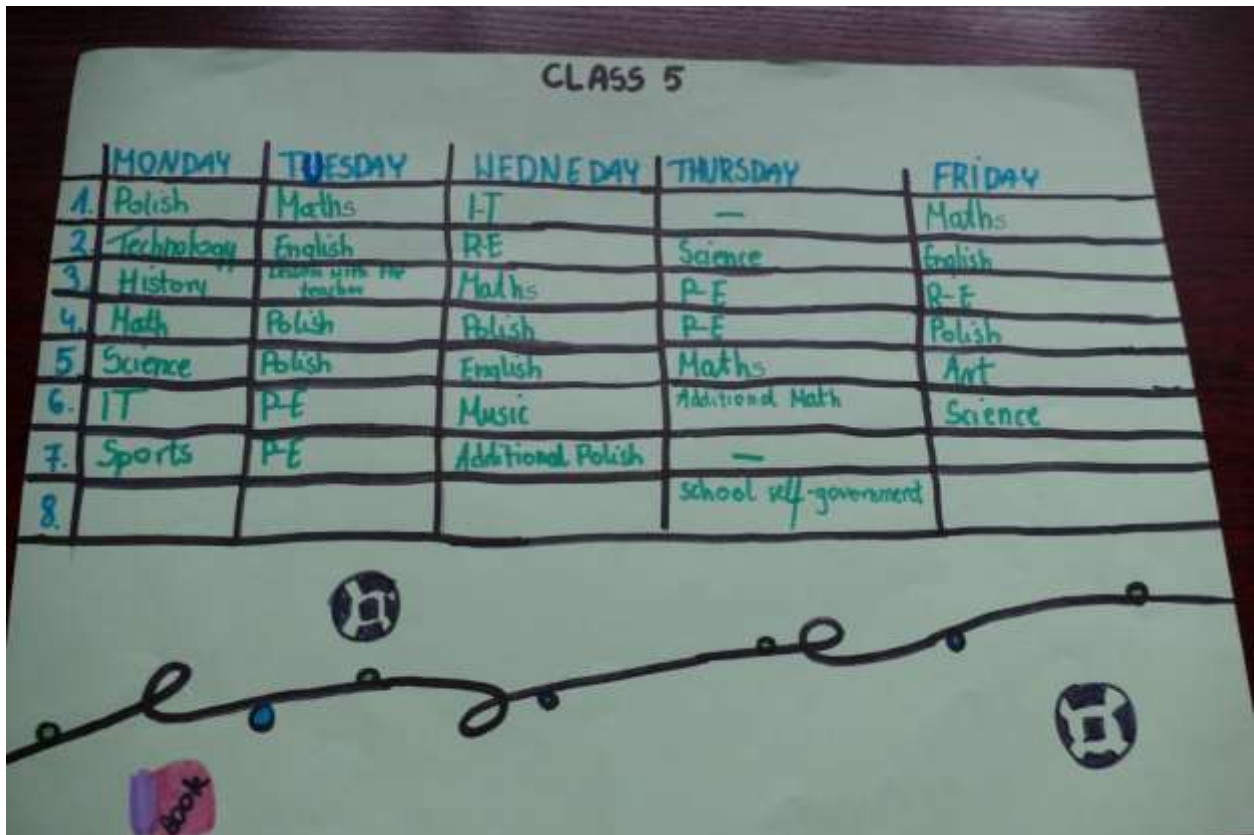 CLASS 5
MONDAY TUESDAY WEDNEDAY THURSDAY FRIDAY
1. Polish Maths I-T — Maths
2. Technology English R-E Science English
3. History Lesson with the teacher Maths P-E R-E
4. Math Polish Polish P-E Polish
5 Science Polish English Maths Art
6. IT P-E Music Additional Math Science
7. Sports P-E Additional Polish —
8. school self-government
BOOK